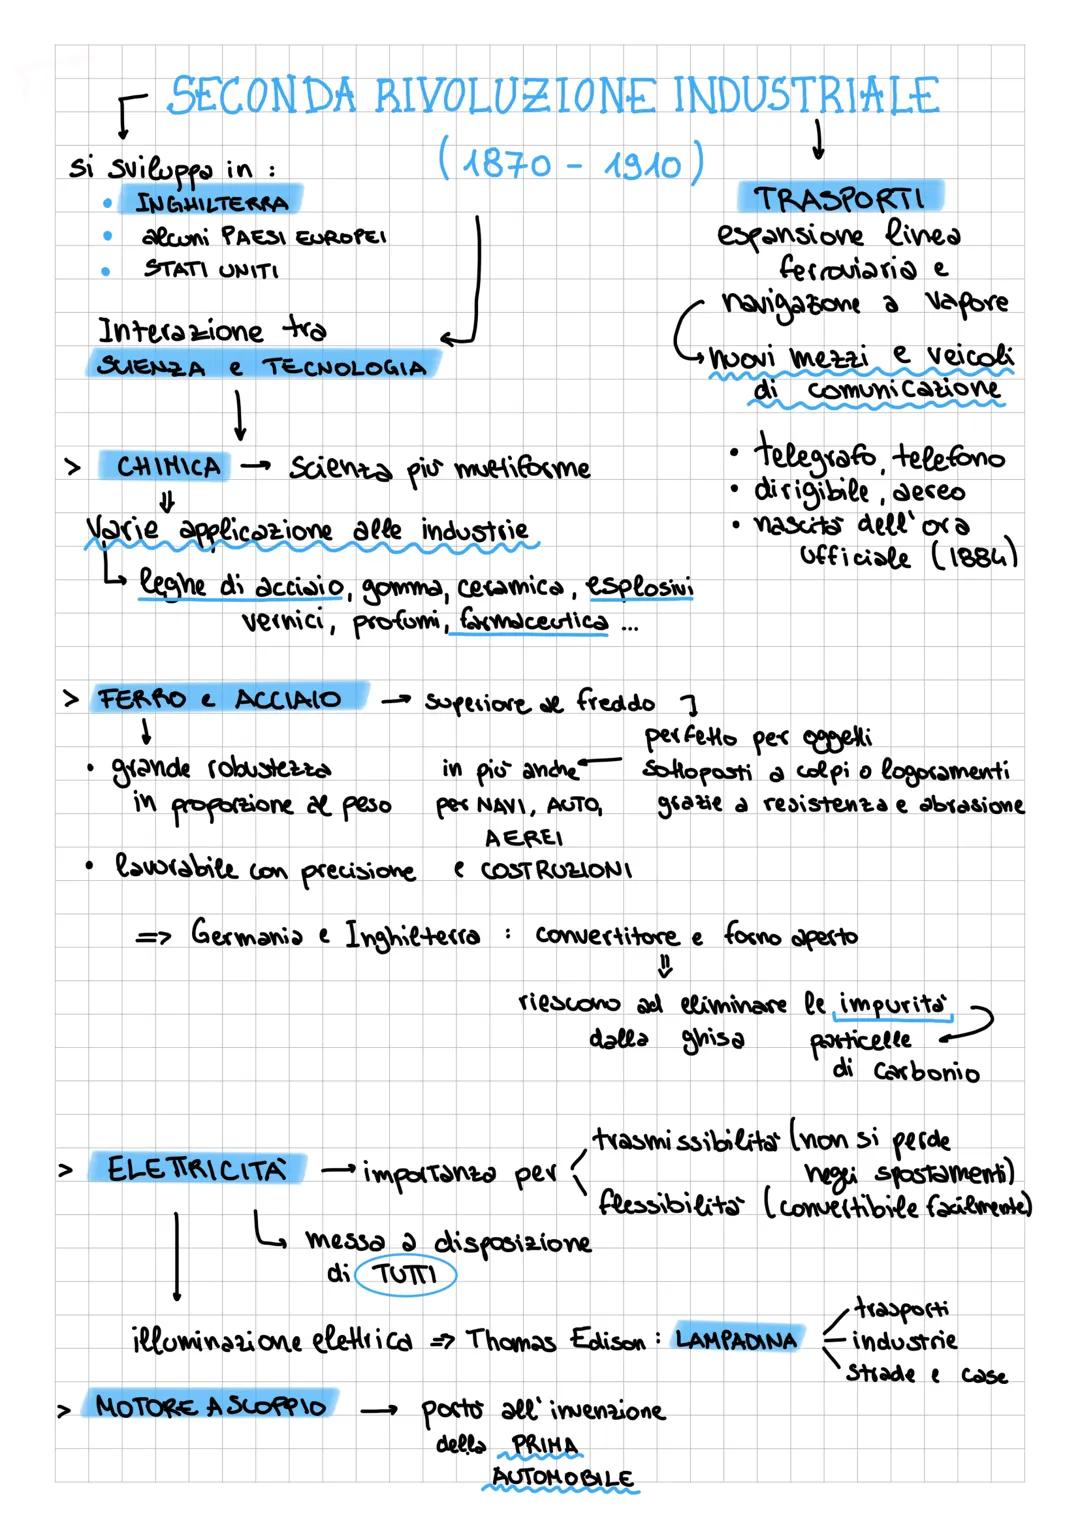 SECONDA RIVOLUZIONE INDUSTRIALE
(1870 - 1910)
si sviluppa in :
• INGHILTERRA
• alcuni PAESI EUROPEI
• STATI UNITI
Interazione tra
SCIENZA e TECNOLOGIA
TRASPORTI
espansione linea
ferroviaria e
navigazone a vapore
nuovi mezzi e veicoli
di comunicazione
• telegrafo, telefono
• dirigibile, aereo
• nascita dell'ora
ufficiale (1884)
> CHIMICA → Scienza più multiforme
⇓
Varie applicazione alle industrie
↳ leghe di acciaio, gomma, ceramica, esplosivi
vernici, profumi, farmaceutica ...
> FERRO e ACCIAIO → superiore al freddo
perfetto per oggetti
sottoposti a colpi o logoramenti
grazie a resistenza e abrasione
• grande robustezza
in proporzione al peso
• lavorabile con precisione
in più anche
per NAVI, AUTO,
AEREI
e COSTRUZIONI
=> Germania e Inghilterra : convertitore e forno aperto
⇓
riescono ad eliminare le impurità
dalla ghisa
particelle
di carbonio
> ELETTRICITÀ → importanza per
trasmissibilità (non si perde
negli spostamenti)
flessibilità (convertibile facilmente)
↳ messa a disposizione
di TUTTI
illuminazione elettrica => Thomas Edison : LAMPADINA
trasporti
industrie
strade e case
> MOTORE A SCOPPIO → portò all'invenzione
della PRIMA
AUTOMOBILE